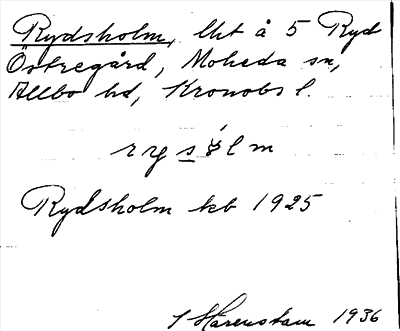 Rydsholm, lht å 5 Ryd
Östregård, Moheda sn,
Allbo hd, Kronobs l.
Rydsholm kb 1925
S Härenstam 1936